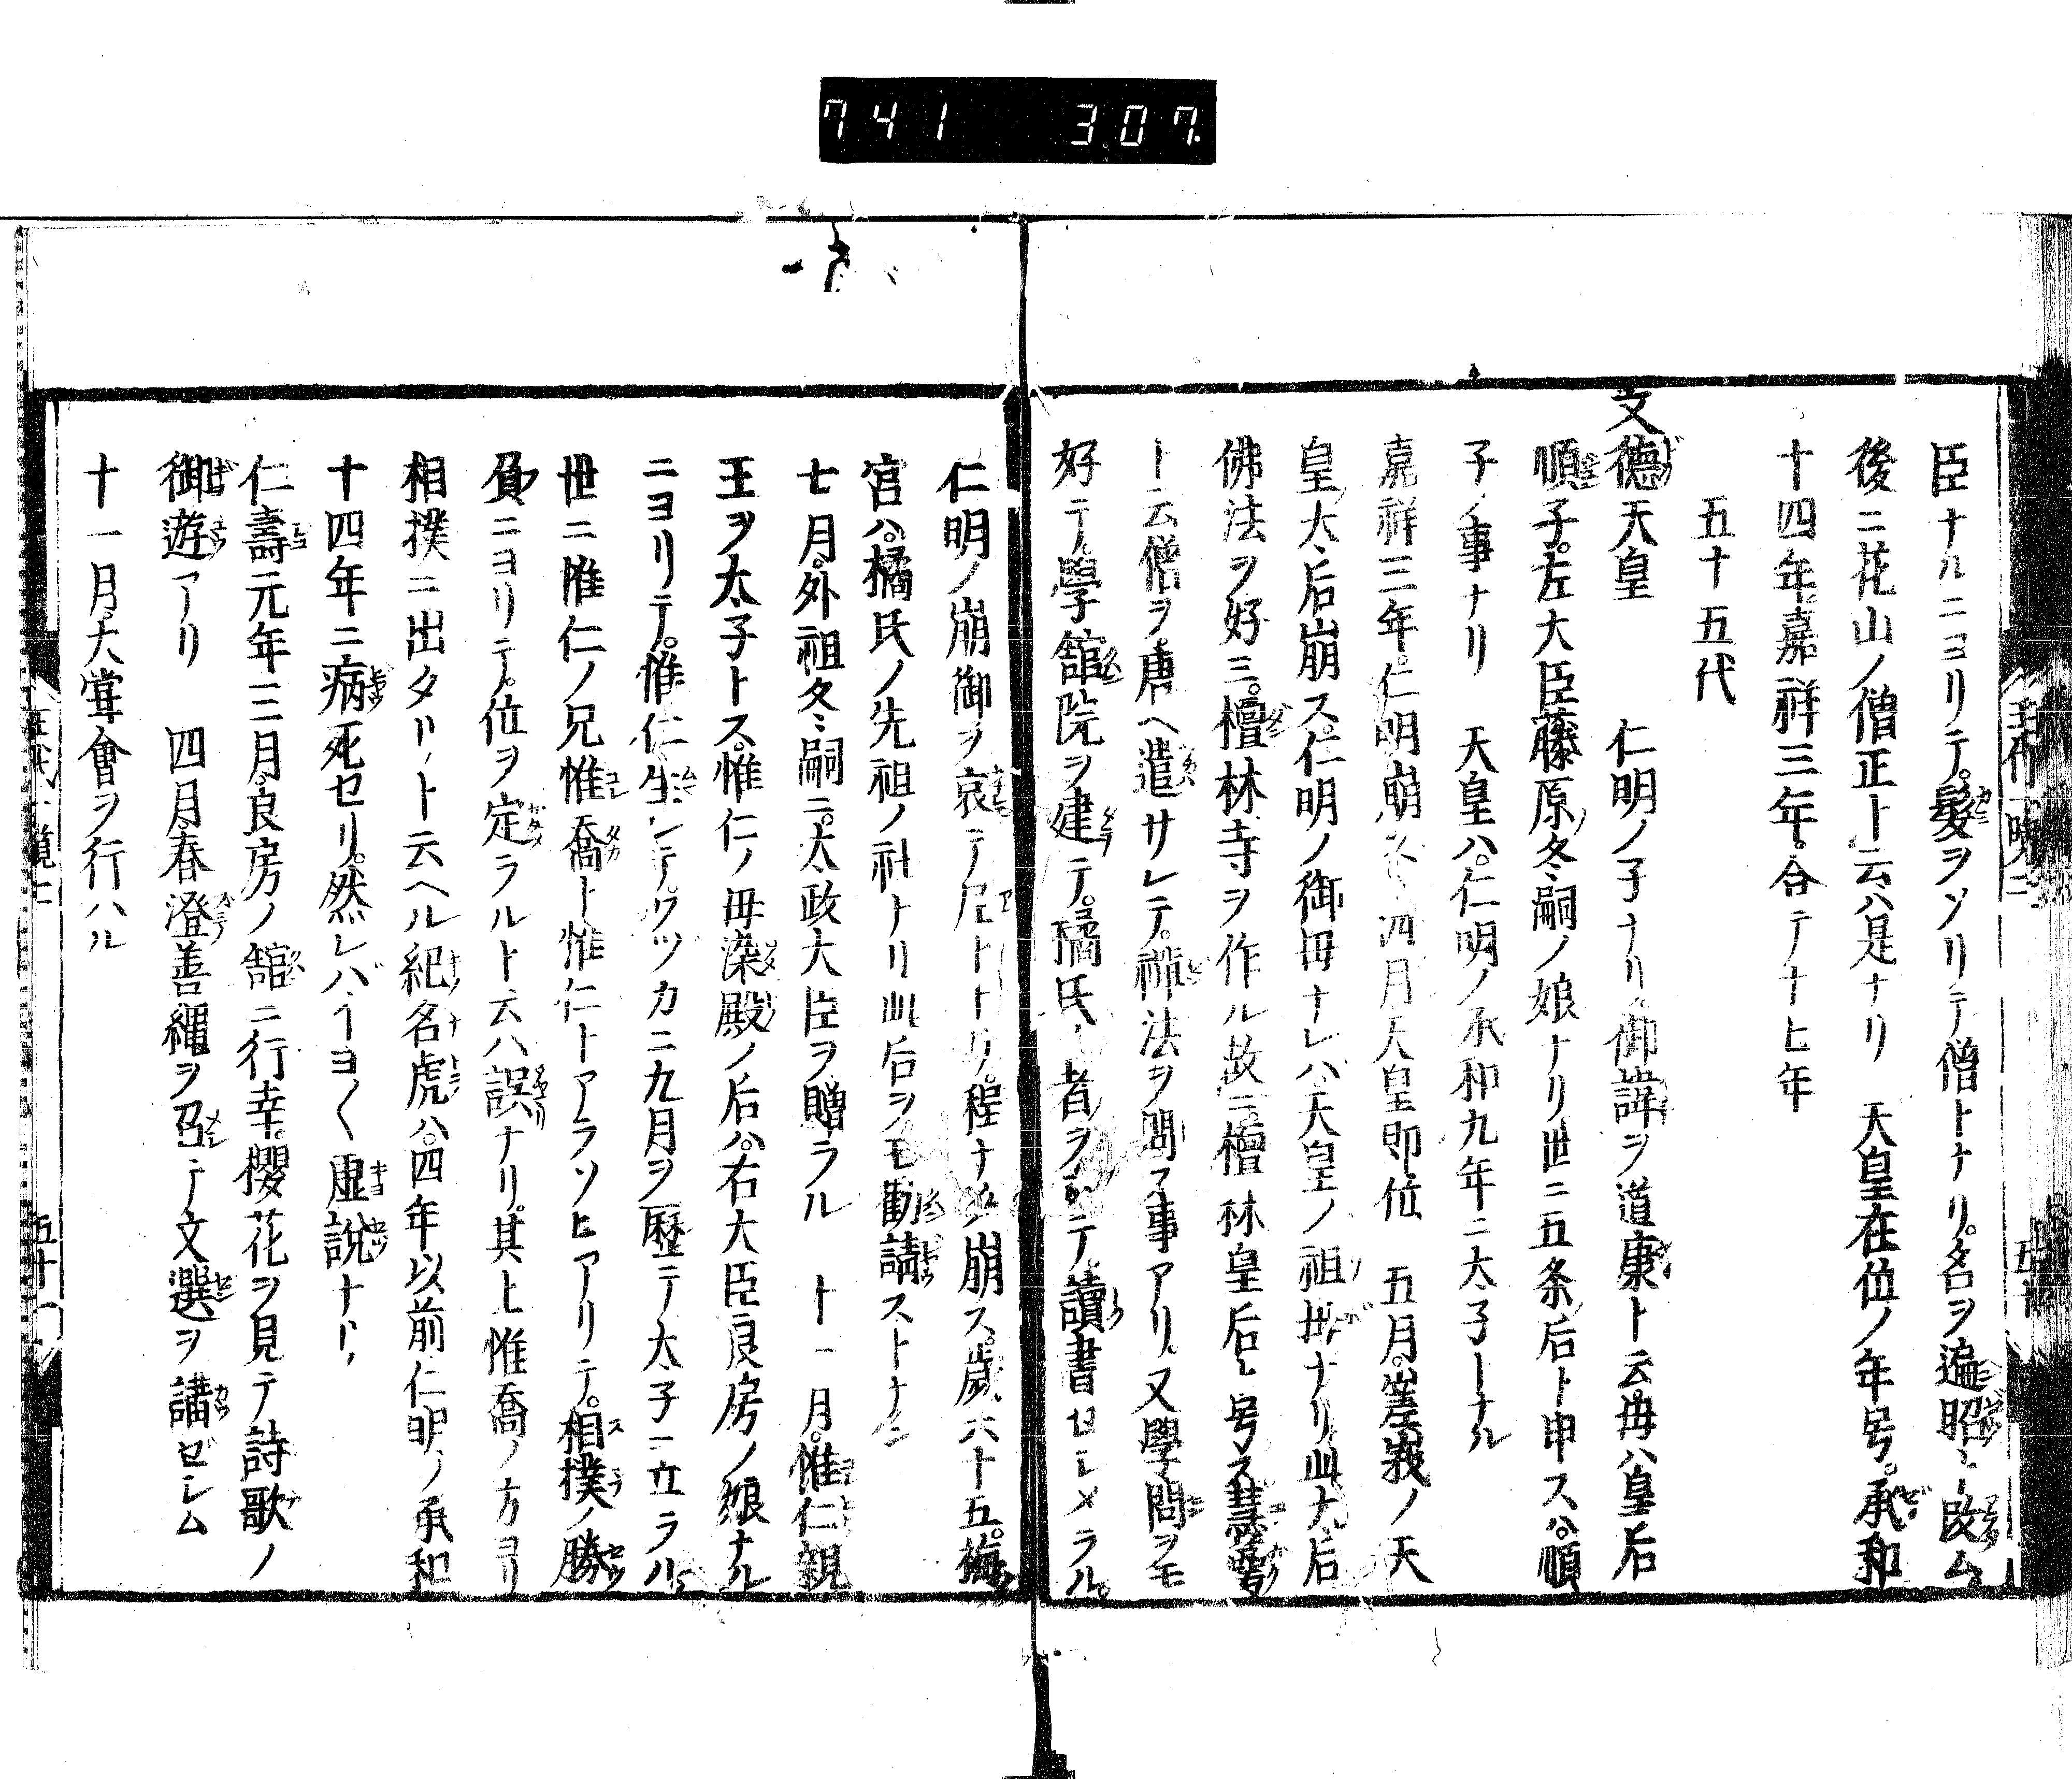 741 307
臣ナルニヨリテ。髪ヲソリテ僧トナリ。名ヲ遍昭ト改ム
後ニ花山ノ僧正ト云ハ是ナリ 天皇在位ノ年号。承和
十四年。嘉祥三年。合テ十七年
五十五代
文徳天皇 仁明ノ子ナリ御諱ヲ道康ト云。毋ハ皇后
順子。左大臣藤原冬嗣ノ娘ナリ世ニ五条ノ后ト申スハ。順
子ノ事ナリ 天皇ハ。仁明ノ承和九年ニ太子トナル
嘉祥三年。仁明崩ス 四月天皇即位 五月。嵯峩ノ天
皇ノ太后崩ス。仁明ノ御毋ナレバ。天皇ノ祖毋ナリ此大后
佛法ヲ好ミ。檀林寺ヲ作ル故ニ。檀林皇后ト号ス慧蕚
ト云僧ヲ。唐ヘ遣サレテ。禅法ヲ問フ事アリ。又學問ヲモ
好テ。學舘院ヲ建テ。橘氏ノ者ヲシテ。讀書セシメラル。
仁明ノ崩御ヲ哀テ尼トナリ。程ナク崩ス。歳六十五。梅
宮ハ。橘氏ノ先祖ノ社ナリ此后ヲモ勧請ストナン
七月。外祖冬嗣ニ。太政大臣ヲ贈ラル 十一月。惟仁親
王ヲ太子トス。惟仁ノ毋染殿ノ后ハ。右大臣良房ノ娘ナル
ニヨリテ。惟仁生レテ。ワツカニ九月ヲ歴テ太子ニ立ラル
世ニ惟仁ノ兄惟喬ト惟仁トアラソヒアリテ。相撲ノ勝
負ニヨリテ。位ヲ定ラルト云ハ誤ナリ。其上惟喬ノ方ヨリ
相撲ニ出タリト云ヘル紀名虎ハ。四年以前仁明ノ承和
十四年ニ病死セリ。然レバイヨ〱虚説ナリ
仁壽元年三月。良房ノ舘ニ行幸。櫻花ヲ見テ詩歌ノ
御遊アリ 四月。春澄善縄ヲ召テ文選ヲ講ゼシム
十一月。大嘗會ヲ行ハル
五十一